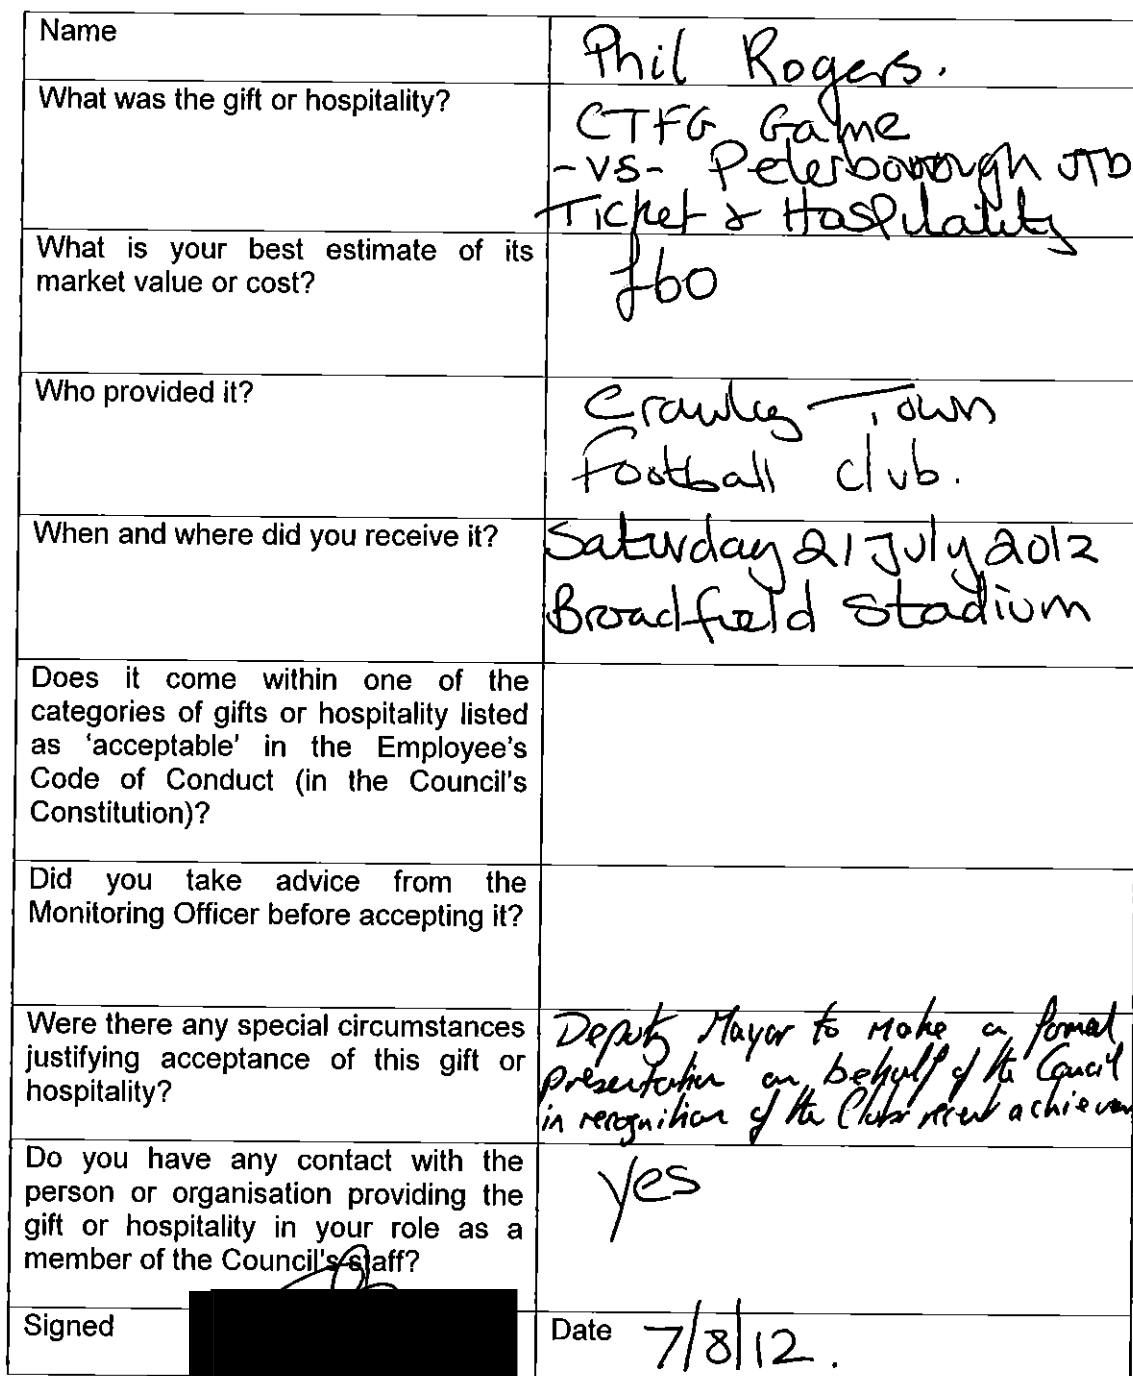 Name
Phil Rogers.
What was the gift or hospitality?
CTFG Game
-vs- Peterborough UTD
Ticket & Hospitality
What is your best estimate of its
market value or cost?
£60
Who provided it?
Crawley Town
Football club.
When and where did you receive it?
Saturday 21 July 2012
Broadfield Stadium
Does it come within one of the
categories of gifts or hospitality listed
as 'acceptable' in the Employee's
Code of Conduct (in the Council's
Constitution)?
Did you take advice from the
Monitoring Officer before accepting it?
Were there any special circumstances
justifying acceptance of this gift or
hospitality?
Deputy Mayor to make a formal
presentation on behalf of the Council
in recognition of the Clubs recent achievem
Do you have any contact with the
person or organisation providing the
gift or hospitality in your role as a
member of the Council's staff?
yes
Signed
Date 7/8/12.